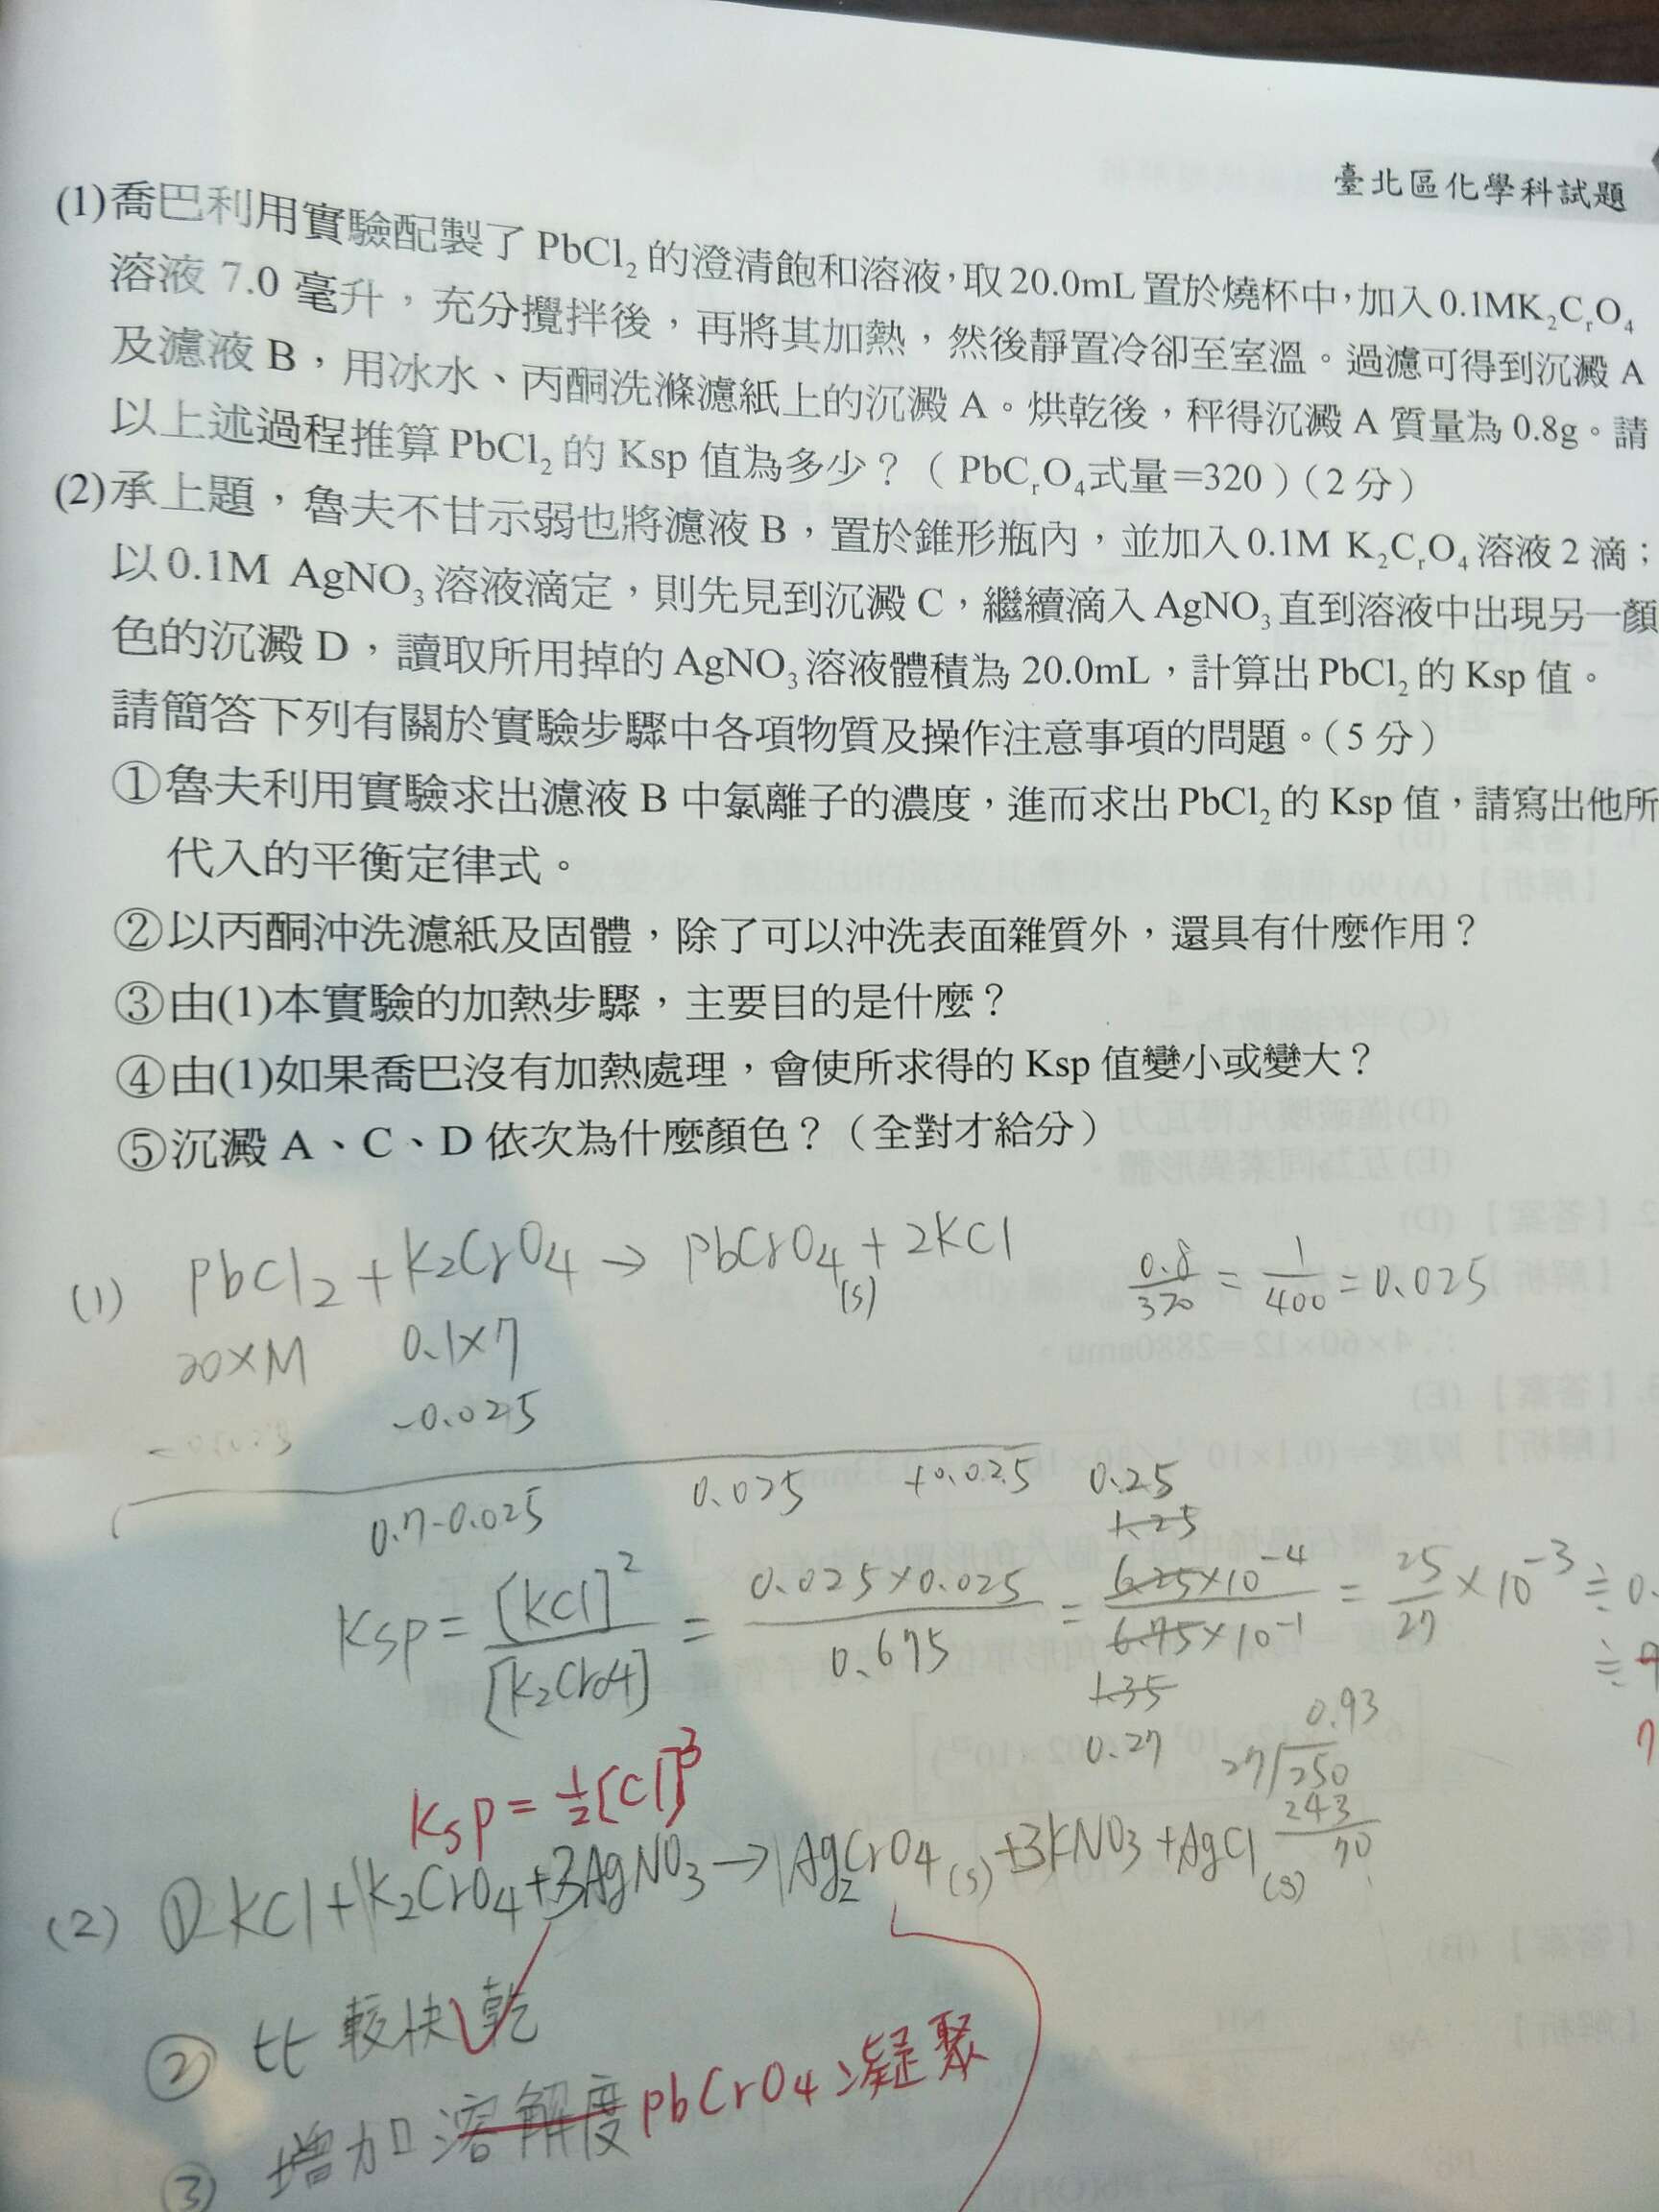 臺北區化學科試題
(1)喬巴利用實驗配製了 PbCl₂ 的澄清飽和溶液,取20.0mL置於燒杯中,加入0.1MK₂CᵣO₄
溶液 7.0 毫升,充分攪拌後,再將其加熱,然後靜置冷卻至室溫。過濾可得到沉澱 A
及濾液 B,用冰水、丙酮洗滌濾紙上的沉澱 A。烘乾後,秤得沉澱 A 質量為 0.8g。請
以上述過程推算 PbCl₂ 的 Ksp 值為多少?( PbCᵣO₄式量=320 )(2 分)
(2)承上題,魯夫不甘示弱也將濾液 B,置於錐形瓶內,並加入0.1M K₂CᵣO₄ 溶液 2 滴;
以0.1M AgNO₃溶液滴定,則先見到沉澱 C,繼續滴入 AgNO₃直到溶液中出現另一顏
色的沉澱 D,讀取所用掉的 AgNO₃溶液體積為 20.0mL,計算出 PbCl₂ 的 Ksp 值。
請簡答下列有關於實驗步驟中各項物質及操作注意事項的問題。(5 分)
①魯夫利用實驗求出濾液 B 中氯離子的濃度,進而求出 PbCl₂ 的 Ksp 值,請寫出他所
代入的平衡定律式。
②以丙酮沖洗濾紙及固體,除了可以沖洗表面雜質外,還具有什麼作用?
③由(1)本實驗的加熱步驟,主要目的是什麼?
④由(1)如果喬巴沒有加熱處理,會使所求得的 Ksp 值變小或變大?
⑤沉澱 A、C、D 依次為什麼顏色?(全對才給分)
(1) PbCl₂ + K₂CrO₄ → PbCrO₄(s) + 2KCl
0.8/320 = 1/400 = 0.025
20×M 0.1×7
-0.025
0.7-0.025 0.025 +0.025
0.25
1.25
Ksp = [KCl]²/[K₂CrO4] = 0.025×0.025/0.675 = 6.25×10⁻⁴/6.75×10⁻¹ = 25/27 ×10⁻³ ≒ 0.
1.35
0.27
0.93
27/250
243
70
Ksp = ½[Cl]³
(2) ① KCl + K₂CrO₄ + 3AgNO₃ → Ag₂CrO₄(s) + 3KNO₃ + AgCl(s)
② 比較快乾
③ 增加溶解度 PbCrO₄凝聚